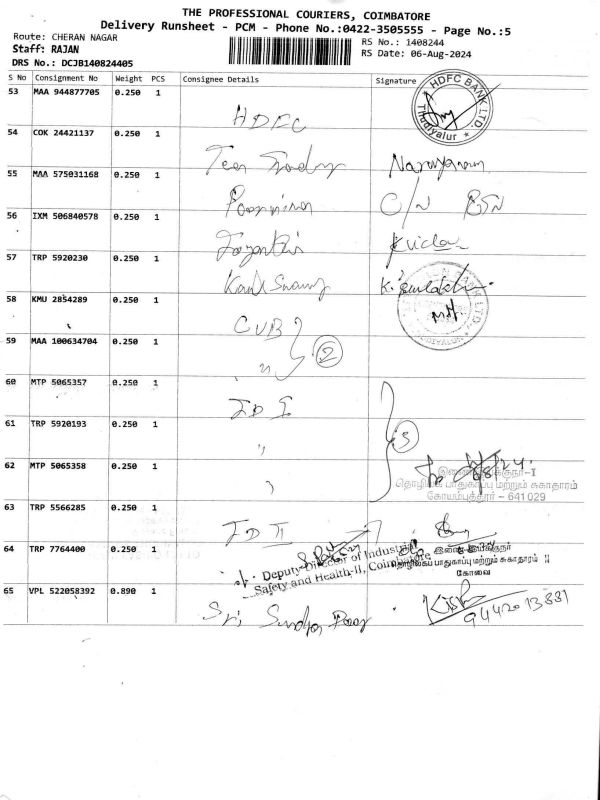 THE PROFESSIONAL COURIERS, COIMBATORE
Delivery Runsheet - PCM - Phone No.:0422-3505555 - Page No.:5
Route: CHERAN NAGAR
RS No.: 1408244
Staff: RAJAN
RS Date: 06-Aug-2024
DRS No.: DCJB140824405
S No Consignment No Weight PCS Consignee Details Signature
53 MAA 944877705 0.250 1
HDFC
HDFC BANK LTD. Thudiyalur
54 COK 24421137 0.250 1
55 MAA 575031168 0.250 1
C/N
56 IXM 506840578 0.250 1
57 TRP 5920230 0.250 1
58 KMU 2854289 0.250 1
CUB
59 MAA 100634704 0.250 1
" 2
60 MTP 5065357 0.250 1
JD I
61 TRP 5920193 0.250 1
" 3
62 MTP 5065358 0.250 1
"
இணை இயக்குநர்-I
தொழிலக பாதுகாப்பு மற்றும் சுகாதாரம்
கோயம்புத்தூர் - 641 029
63 TRP 5566285 0.250 1
JD II
64 TRP 7764400 0.250 1
Deputy Director of Industrial
Safety and Health-II, Coimbatore
இணை இயக்குநர்
பாதுகாப்பு மற்றும் சுகாதாரம் II
கோவை
65 VPL 522058392 0.890 1
Sri
9442013331